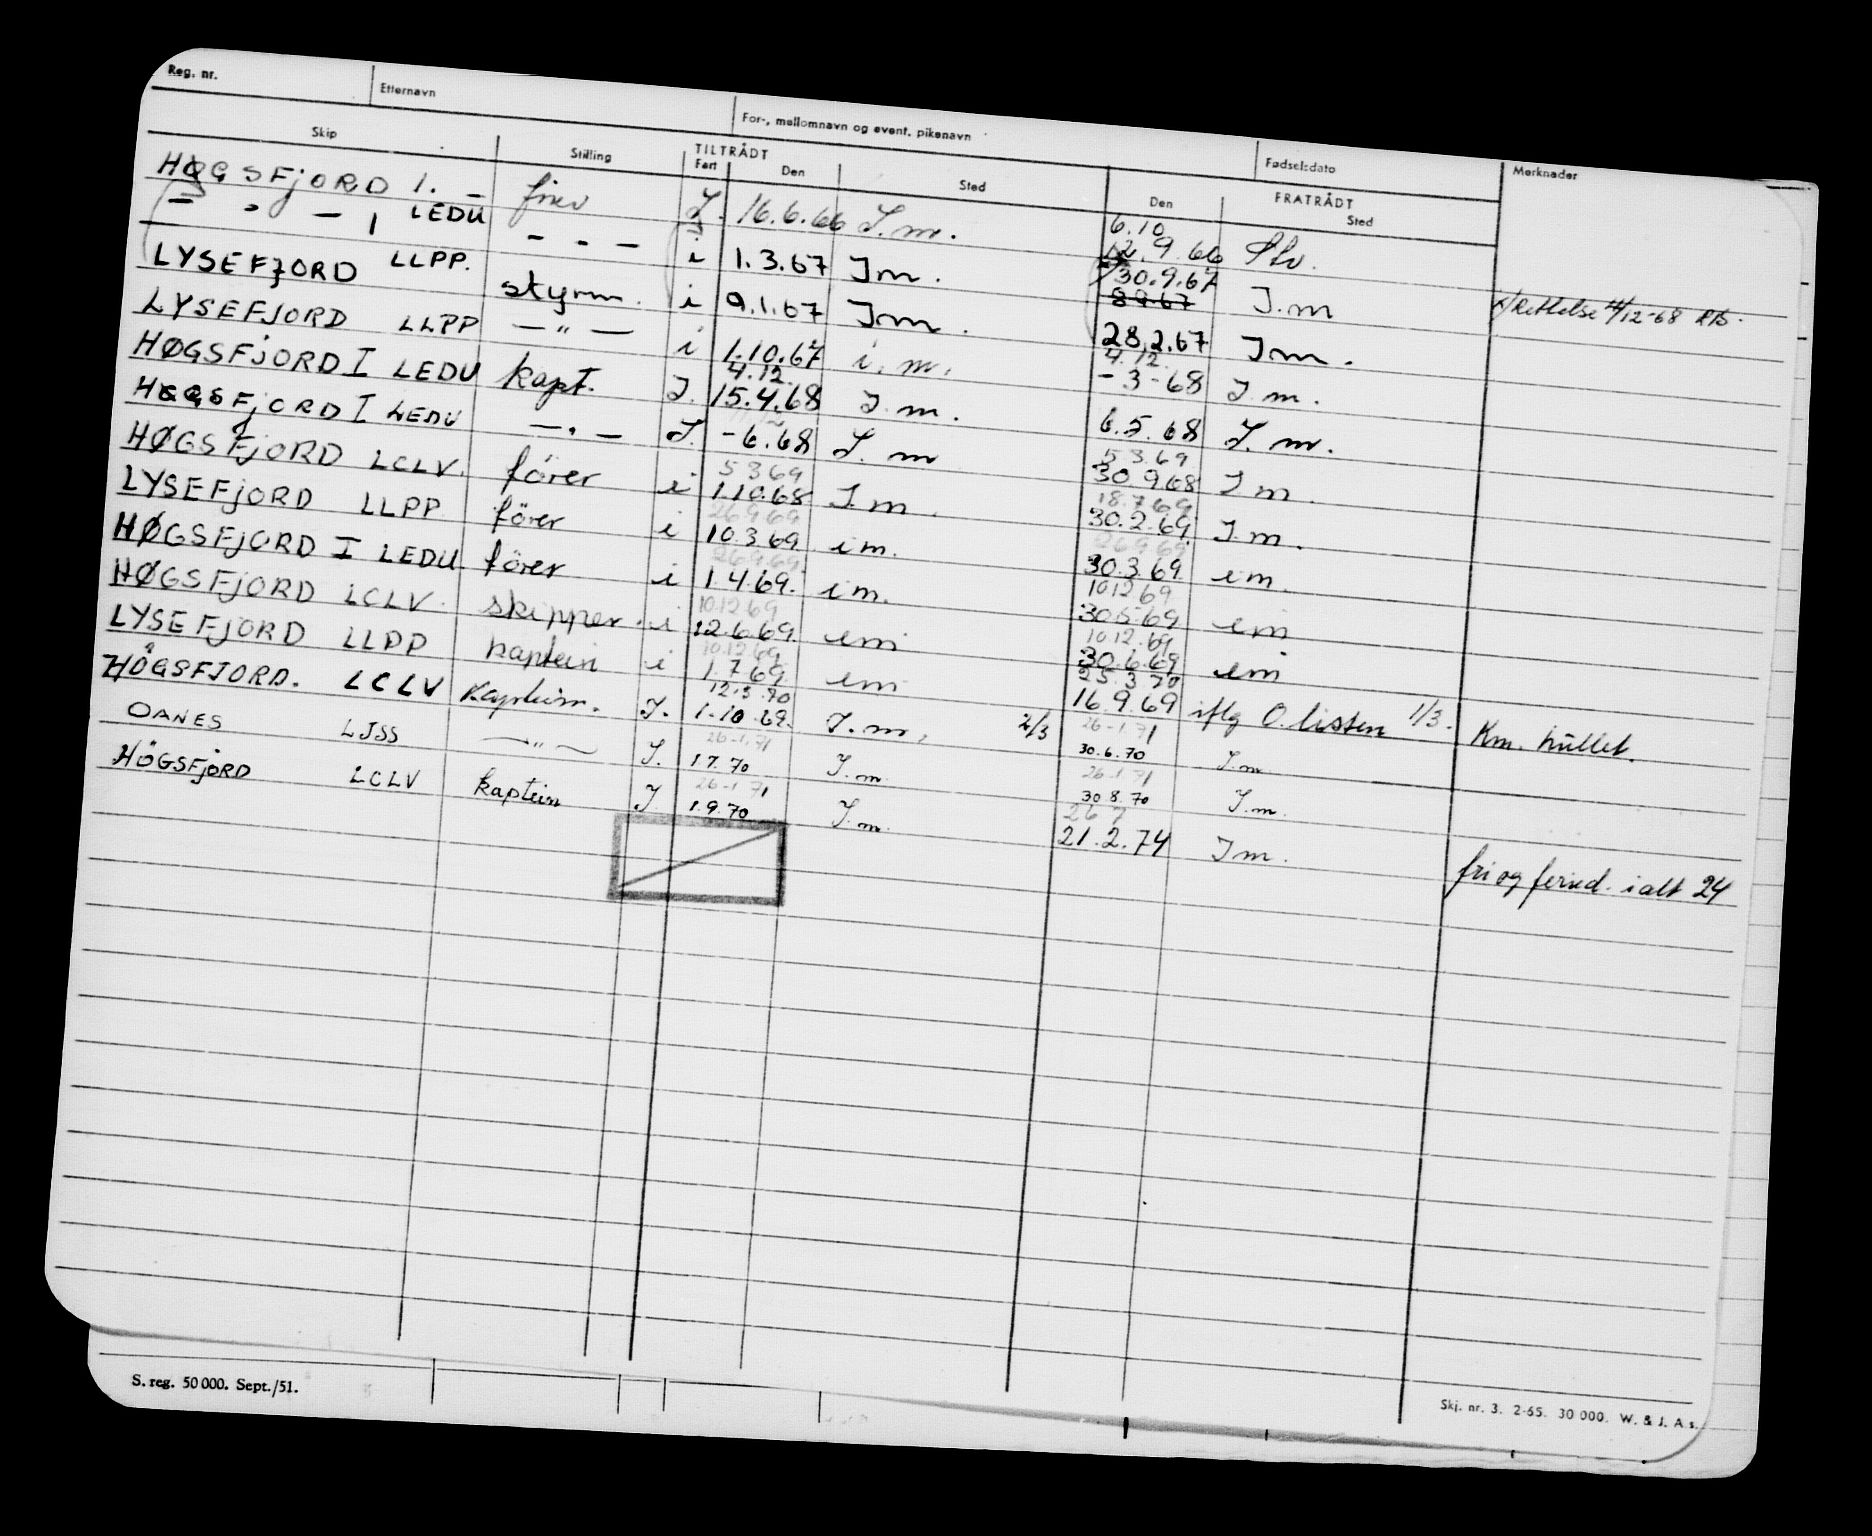 Reg. nr. Etternavn For-, mellomnavn og event. pikenavn Fødselsdato Merknader
Skip Stilling TILTRÅDT FRATRÅDT
Fart Den Sted Den Sted
HØGSFJORD I. — J. 16.6.66 J.m. 6.10 2.9.66
— " — I LEDU — " — i 1.3.67 Jm. 30.9.67 8.9.67 J.m Rettelse 4/12-68 RB.
LYSEFJORD LLPP. styrm. i 9.1.67 Jm. 28.2.67 Jm.
LYSEFJORD LLPP — " — i 1.10.67 i.m. 4.12. -3-68 J.m.
HØGSFJORD I LEDU kapt. J. 4.12. 15.4.68 J.m. 6.5.68 J.m.
HØGSFJORD I LEDU — " — J. -6.68 J.m 5.3.69 30.9.68 Jm.
HØGSFJORD LCLV. förer i 5 3 69 1.10.68 J.m. 18.7.69 30.2.69 J.m.
LYSEFJORD LLPP förer i 26.9.69 10.3.69 im. 26.9.69 30.3.69 im.
HØGSFJORD I LEDU förer i 26.9.69 1.4.69. im. 10.12 69 30.5.69 im
HØGSFJORD LCLV. skipper. i 10.12 69 12.6.69. im 10.12.69 30.6.69 im
LYSEFJORD LLPP kaptein i 10.12.69 1.7.69. im 25.3 70 16.9.69 iflg O.listen 1/3. Km. hullet.
HÖGSFJORD. LCLV J. 12.3.70 1.10.69. J.m. 2/3 26-1.71 30.6.70 J.m.
OANES LJSS — " — J. 26-1.71 1.7.70 J.m. 26-1 71 30 8.70 J.m.
HÖGSFJORD LCLV kaptein J. 26-1 71 1.9.70 J.m. 26 7 21.2.74 Jm. fri og feried. ialt 24
S. reg. 50 000. Sept./51.
Skj. nr. 3. 2-65. 30 000. W. & J. A s.